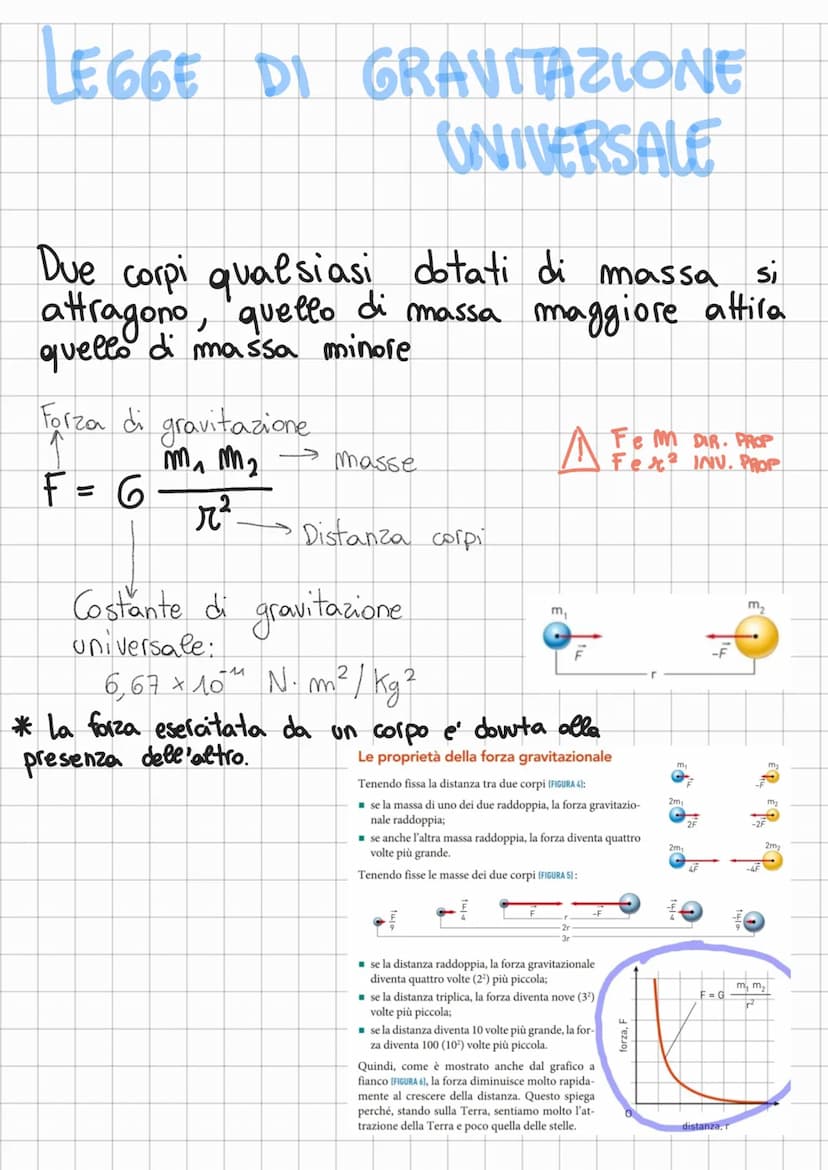 LEGGE DI GRAVITAZIONE
UNIVERSALE
Due corpi qualsiasi dotati di massa si
attragono, quello di massa maggiore attira
quello di massa minore
Forza di gravitazione
F = G m₁ m₂ / r²
→ masse
→ Distanza corpi
⚠ F e m DIR. PROP
F e r² INV. PROP
Costante di gravitazione
universale:
6,67 × 10⁻¹¹ N · m²/Kg²
m₁ m₂
F⃗ -F⃗
r
* La forza esercitata da un corpo e' dovuta alla
presenza dell'altro.
Le proprietà della forza gravitazionale
Tenendo fissa la distanza tra due corpi (FIGURA 4):
▪ se la massa di uno dei due raddoppia, la forza gravitazio-
nale raddoppia;
▪ se anche l'altra massa raddoppia, la forza diventa quattro
volte più grande.
m₁ m₂
F⃗ -F⃗
2m₁ m₂
2F⃗ -2F⃗
2m₁ 2m₂
4F⃗ -4F⃗
Tenendo fisse le masse dei due corpi (FIGURA 5):
F⃗/9 F⃗/4 F⃗ -F⃗ -F⃗/4 -F⃗/9
r
2r
3r
▪ se la distanza raddoppia, la forza gravitazionale
diventa quattro volte (2²) più piccola;
▪ se la distanza triplica, la forza diventa nove (3²)
volte più piccola;
▪ se la distanza diventa 10 volte più grande, la for-
za diventa 100 (10²) volte più piccola.
Quindi, come è mostrato anche dal grafico a
fianco (FIGURA 6), la forza diminuisce molto rapida-
mente al crescere della distanza. Questo spiega
perché, stando sulla Terra, sentiamo molto l'at-
trazione della Terra e poco quella delle stelle.
F = G m₁ m₂ / r²
forza, F
0
distanza, r